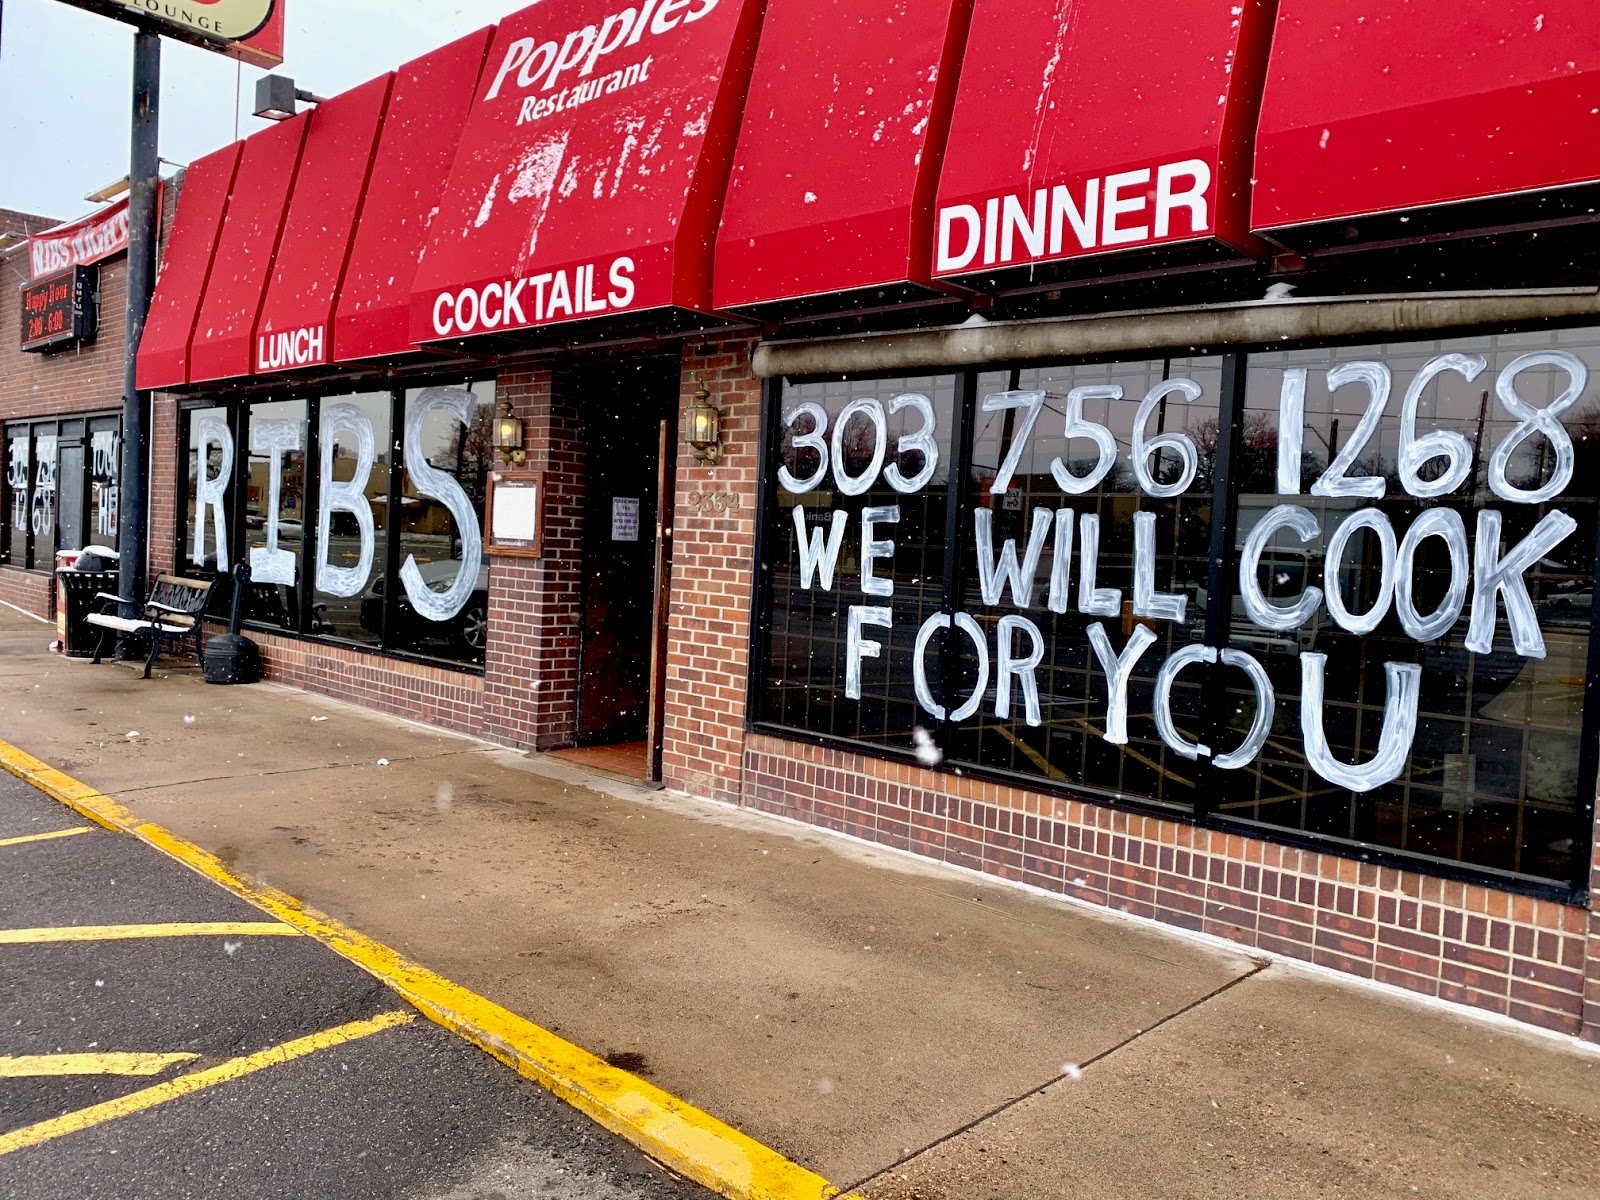 LOUNGE
Poppies
Restaurant
RIBS NIGHT
Happy Hour
2:00 - 6:00
LUNCH
COCKTAILS
DINNER
RIBS
303 756 1268
WE WILL COOK
FOR YOU
2334
303 756
1268